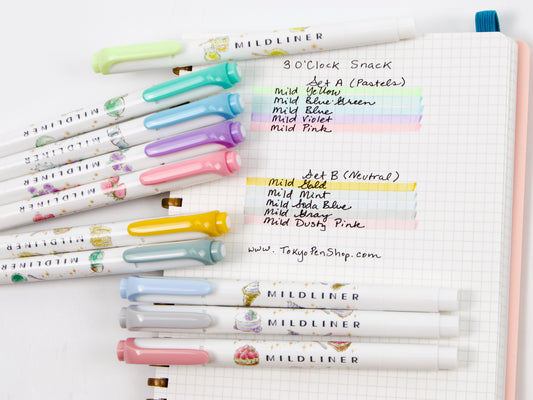 MILDLINER
3 O'Clock Snack
Set A (Pastels)
Mild Yellow
Mild Blue Green
Mild Blue
Mild Violet
Mild Pink
Set B (Neutral)
Mild Gold
Mild Mint
Mild Soda Blue
Mild Gray
Mild Dusty Pink
www.TokyoPenShop.com
MILDLINER
MILDLINER
MILDLINER
MILDLINER
MILDLINER
MILDLINER
MILDLINER
MILDLINER
MILDLINER